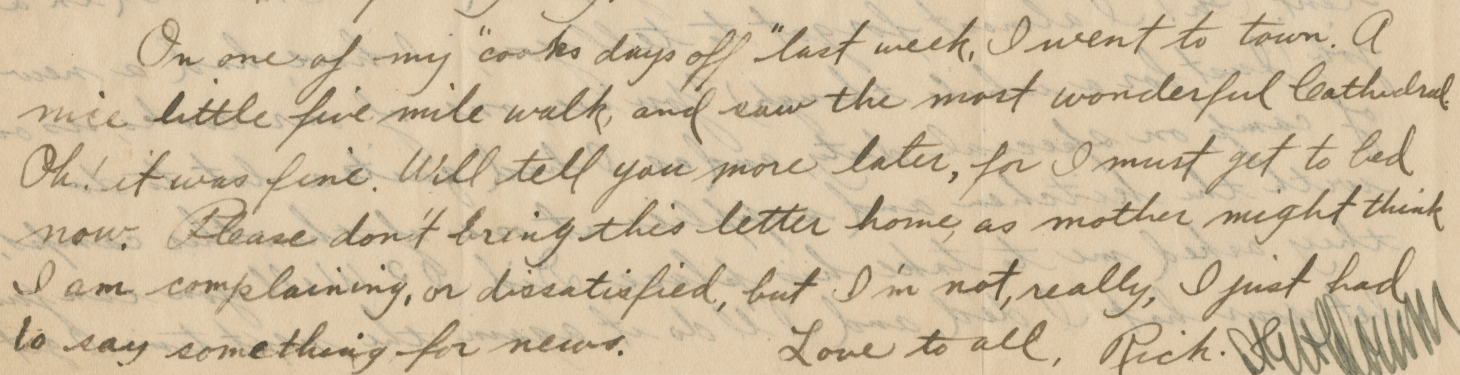 On one of my "cooks days off" last week, I went to town. A
nice little five mile walk, and saw the most wonderful Cathedral.
Oh! it was fine. Will tell you more later, for I must get to bed
now. Please don't bring this letter home, as mother might think
I am complaining, or dissatisfied, but I'm not, really, I just had
to say something for news. Love to all, Rich.